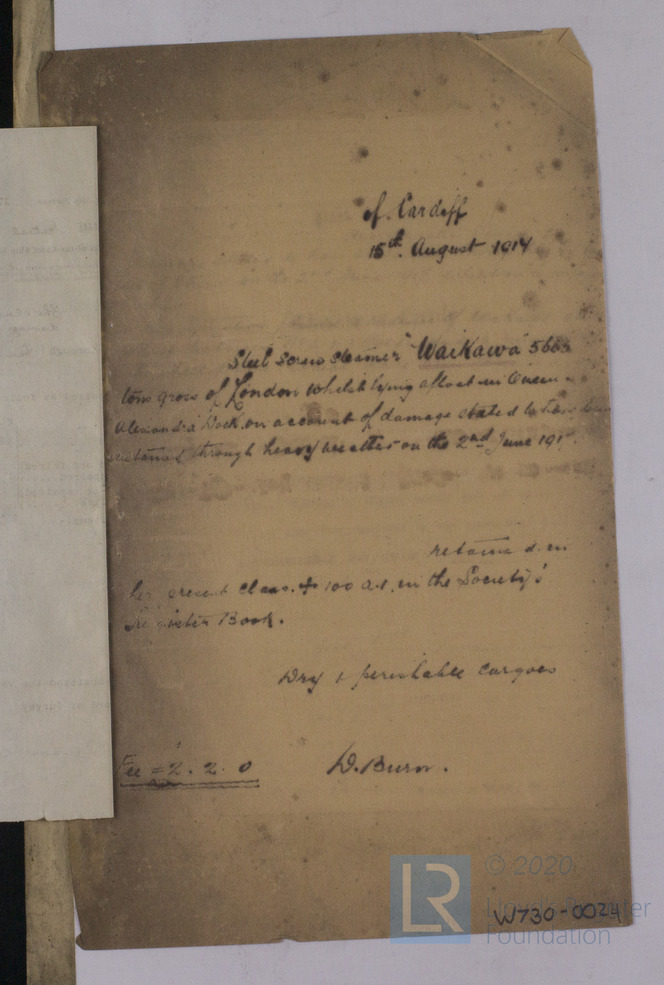 of Cardiff
15th August 1914
Steel Screw Steamer "Waikawa" 566
tons gross of London whilst lying afloat in Queen
Alexandra Dock, on account of damage stated to have been
sustained through heavy weather on the 2nd June 191
retained in
her present class + 100 A.1. in the Society's
Register Book.
Dry & perishable cargoes
Fee = 2. 2. 0
D. Burn.
© 2020
LR
Lloyd's Register
Foundation
W730-0024